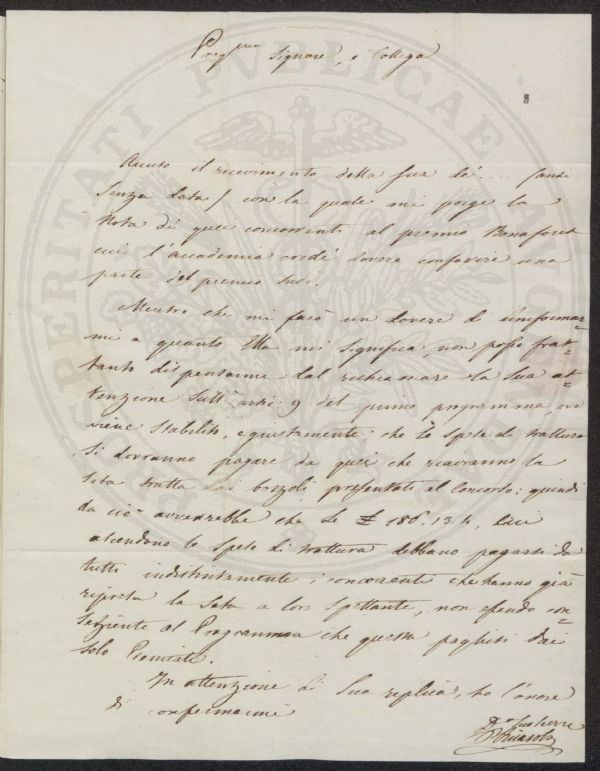 Preg.mo Signore, e Collega
5
Accuso il ricevimento della sua
senza data / con la quale mi porge la
Nota di quei concorrenti al premio Bonafous
cui l'accademia credè dovere conferire una
parte del premio
Mentre che mi farò un dovere di uniformar=
mi a quanto Ella mi significa, non posso frat=
tanto dispensarmi dal richiamare la sua at=
tenzione sull' 9 del primo programma ove
viene stabilito, e giustamente che le spese di trattura
si dovranno pagare da quei che ricavranno la
Seta tratta dai bozoli presentati al Concorso: quindi
da ciò avverrebbe che le £ 186.13.4, cui
ascendono le spese di trattura debbano pagarsi da
tutti indistintamente i concorrenti che hanno già
riposta la Seta a loro spettante, non essendo con=
al Programma che questa paghisi dai
solo Premiati.
In attenzione di Sua replica, ho l'onore
di confermarmi
PROSPERITATI PVBLICAE